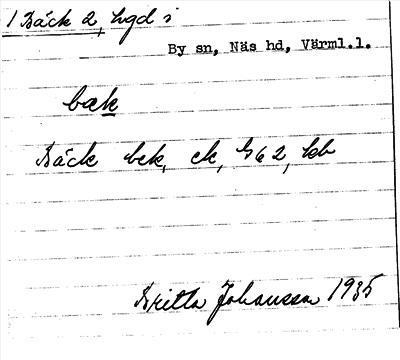 1 Bäck 2, hgd i
By sn, Näs hd, Värml.l.
bæk
Bäck bek, ek, G 62, kb
Britta Johansson 1935